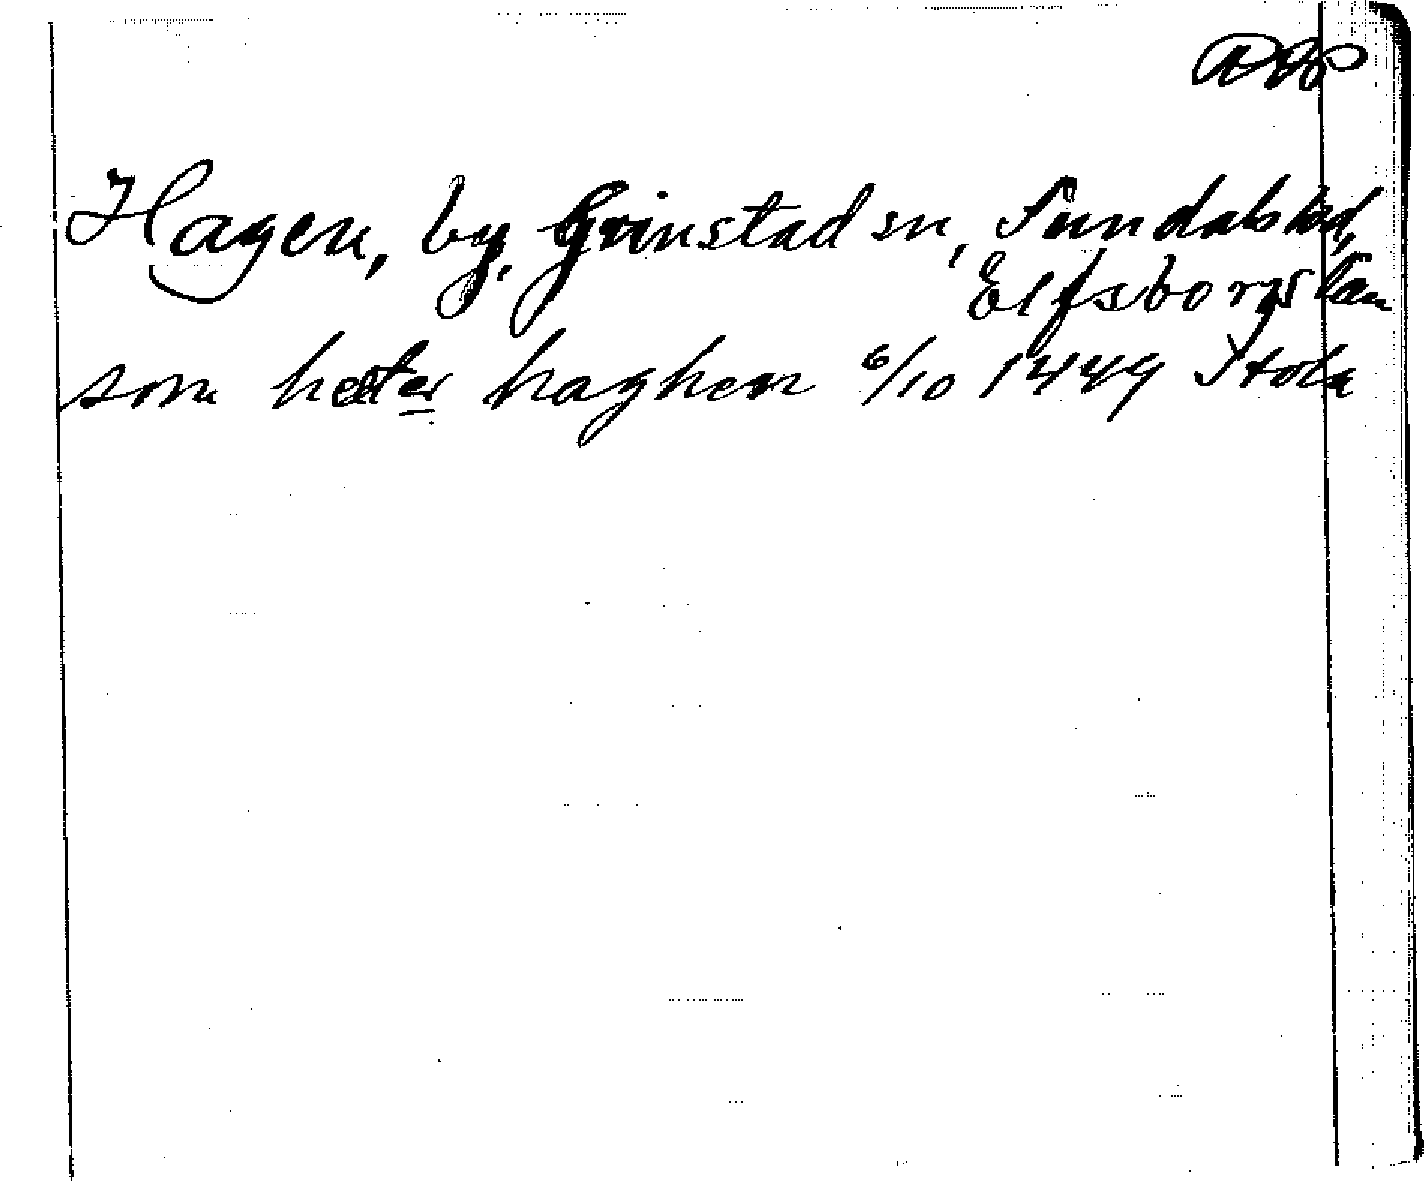 Hagen, by, Grinstad sn, Sundals hd,
Elfsborgs län
som heeter haghen 6/10 1449 Stola